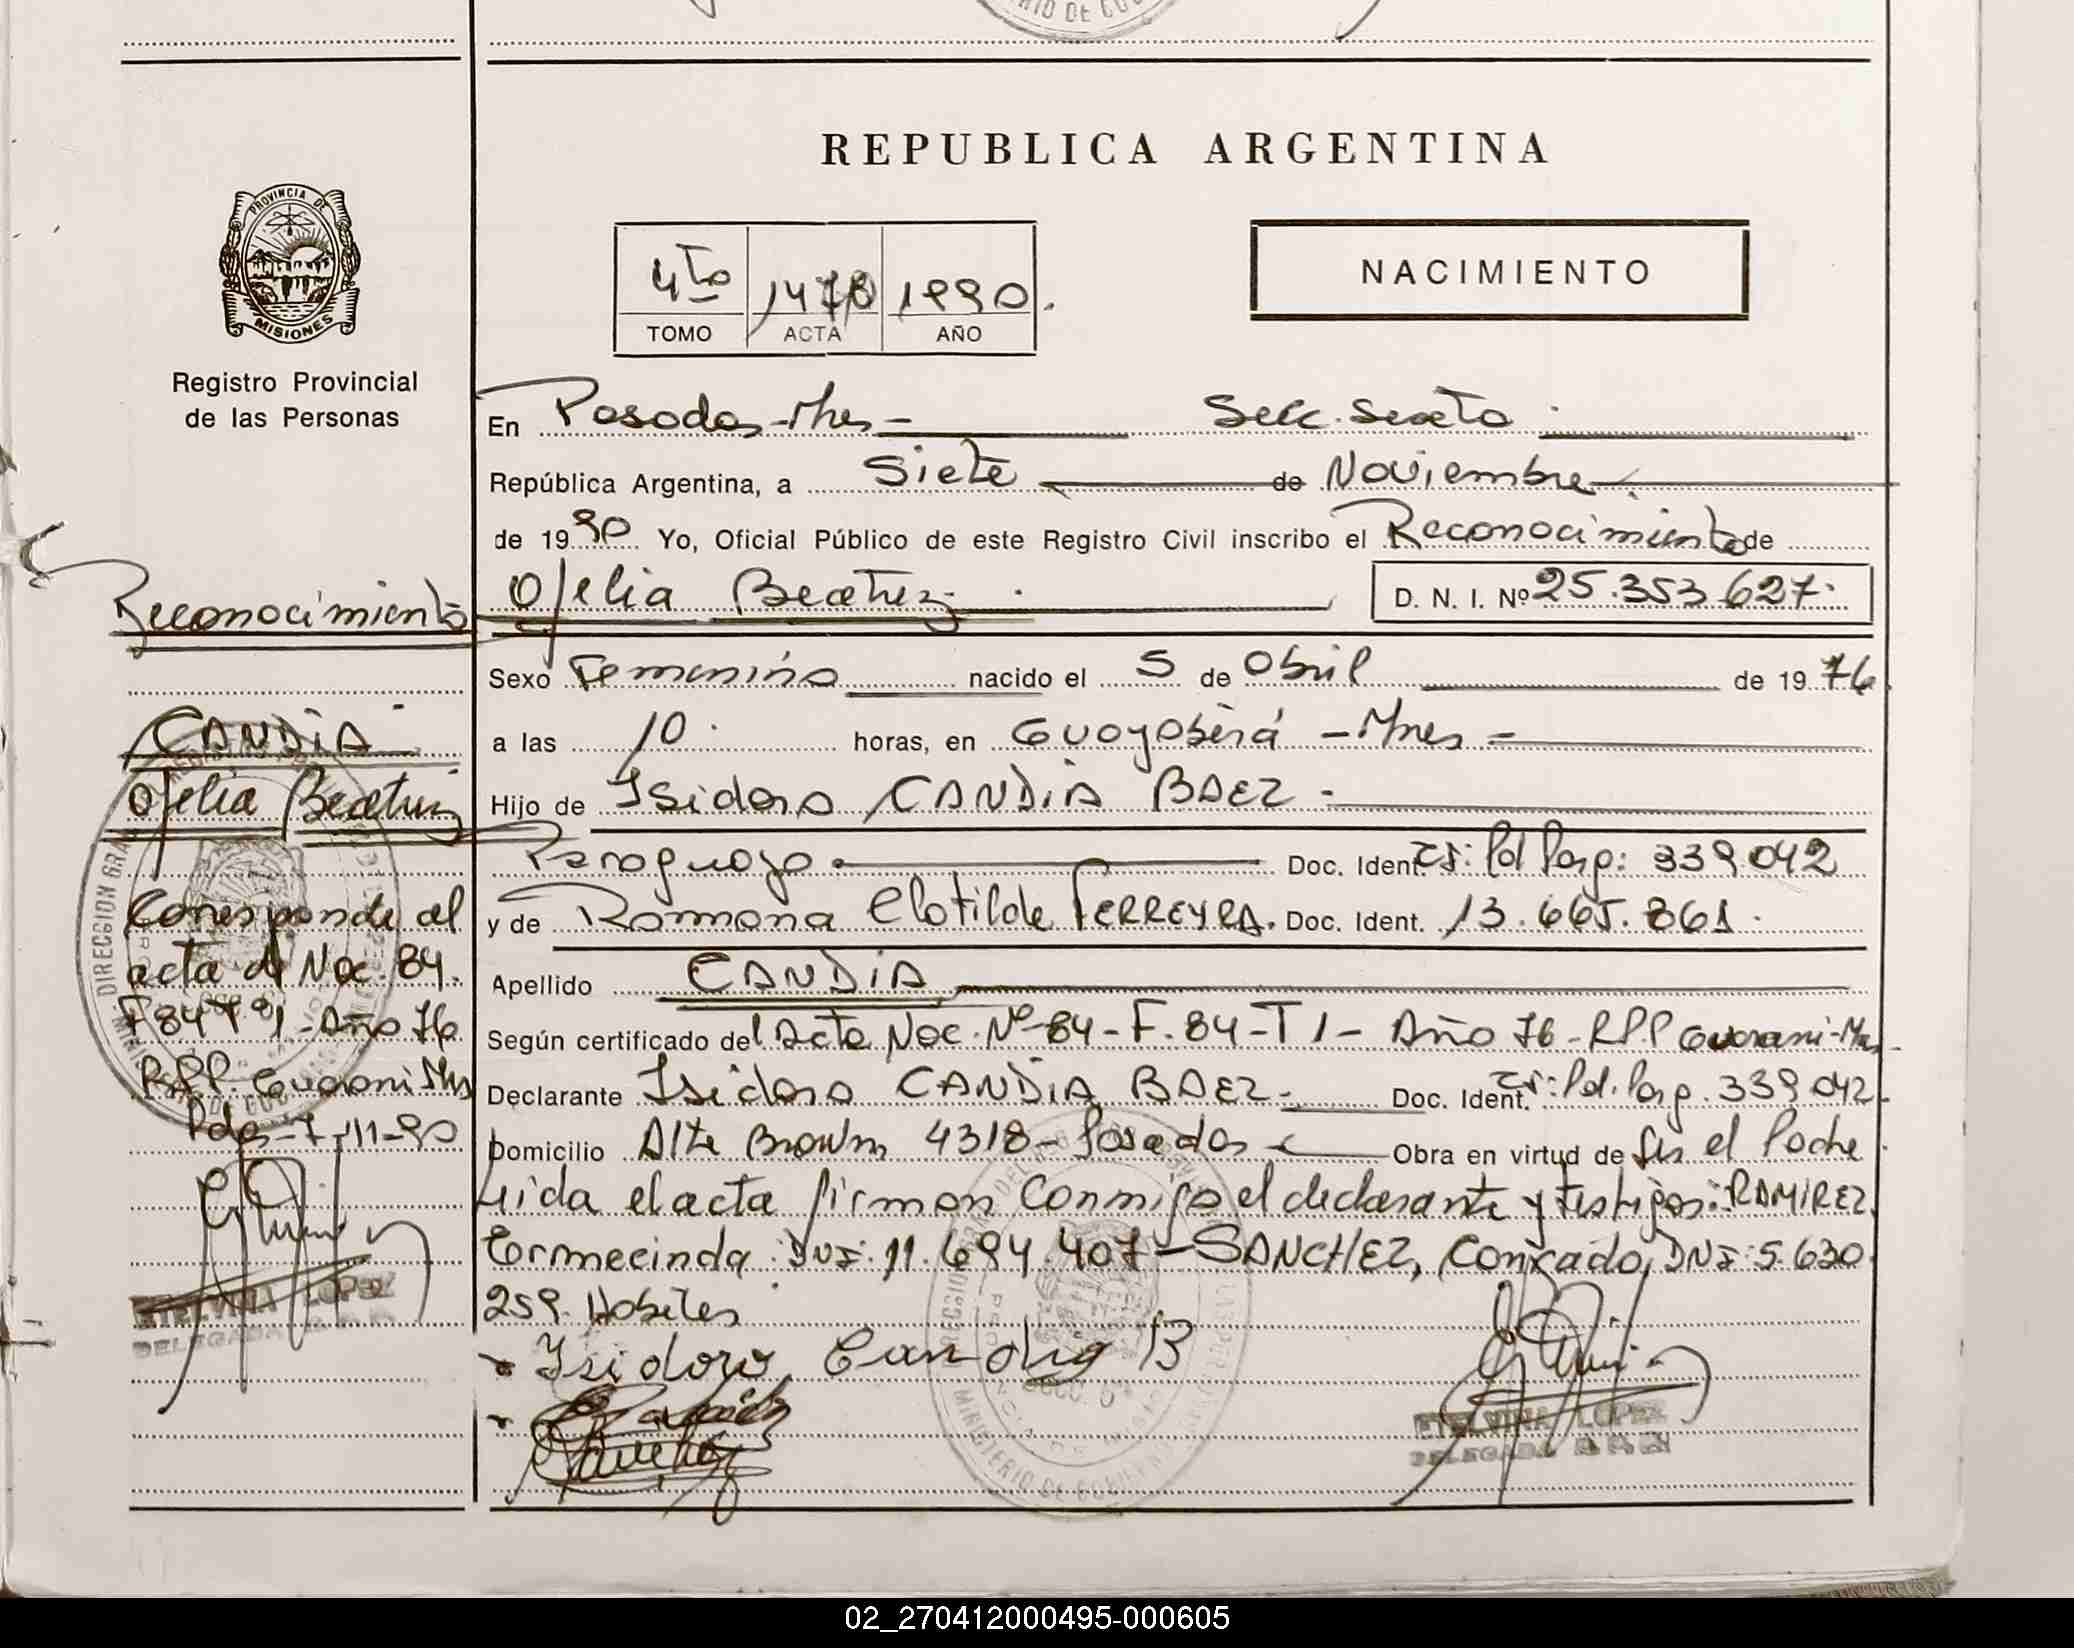 REPUBLICA ARGENTINA
PROVINCIA DE
MISIONES
Registro Provincial
de las Personas
4to 1478 1990.
TOMO ACTA AÑO
NACIMIENTO
En Posadas-Mnes- Secc. Sexta
República Argentina, a Siete de Noviembre
de 1990 Yo, Oficial Público de este Registro Civil inscribo el Reconocimiento de
Ofelia Beatriz D. N. I. Nº 25.353.627.
Sexo Femenino nacido el 5 de Abril de 1976
a las 10. horas, en Guayabirá - Mnes -
Hijo de Isidoro CANDIA BAEZ -
Paraguayo Doc. Ident. CI: Pol Parg: 339.042
y de Ramona Clotilde FERREYRA. Doc. Ident. 13.665.861.
Apellido CANDIA
Según certificado del Acta Nac. Nº 84-F.84-T1- Año 76-RPP Guarani-Mns
Declarante Isidoro CANDIA BAEZ- Doc. Ident. CI: Pol. Parg. 339 042
Domicilio Alte Brown 4318- Posadas Obra en virtud de ser el Padre
Leida el acta firman conmigo el declarante y testigos: RAMIREZ
Ermecinda DNI: 11.694.407 - SANCHEZ, Conrado, DNI: 5.630
259. Habiles
Isidoro Candia B
Sanchez
ETELVINA LOPEZ
DELEGADA
Reconocimiento
CANDIA
Ofelia Beatriz
Corresponde al
acta de Nac. 84.
F 84 T 1 - Año 76
RPP Guarani Mns
Pdas-7-11-90
ETELVINA LOPEZ
DELEGADA
02_270412000495-000605